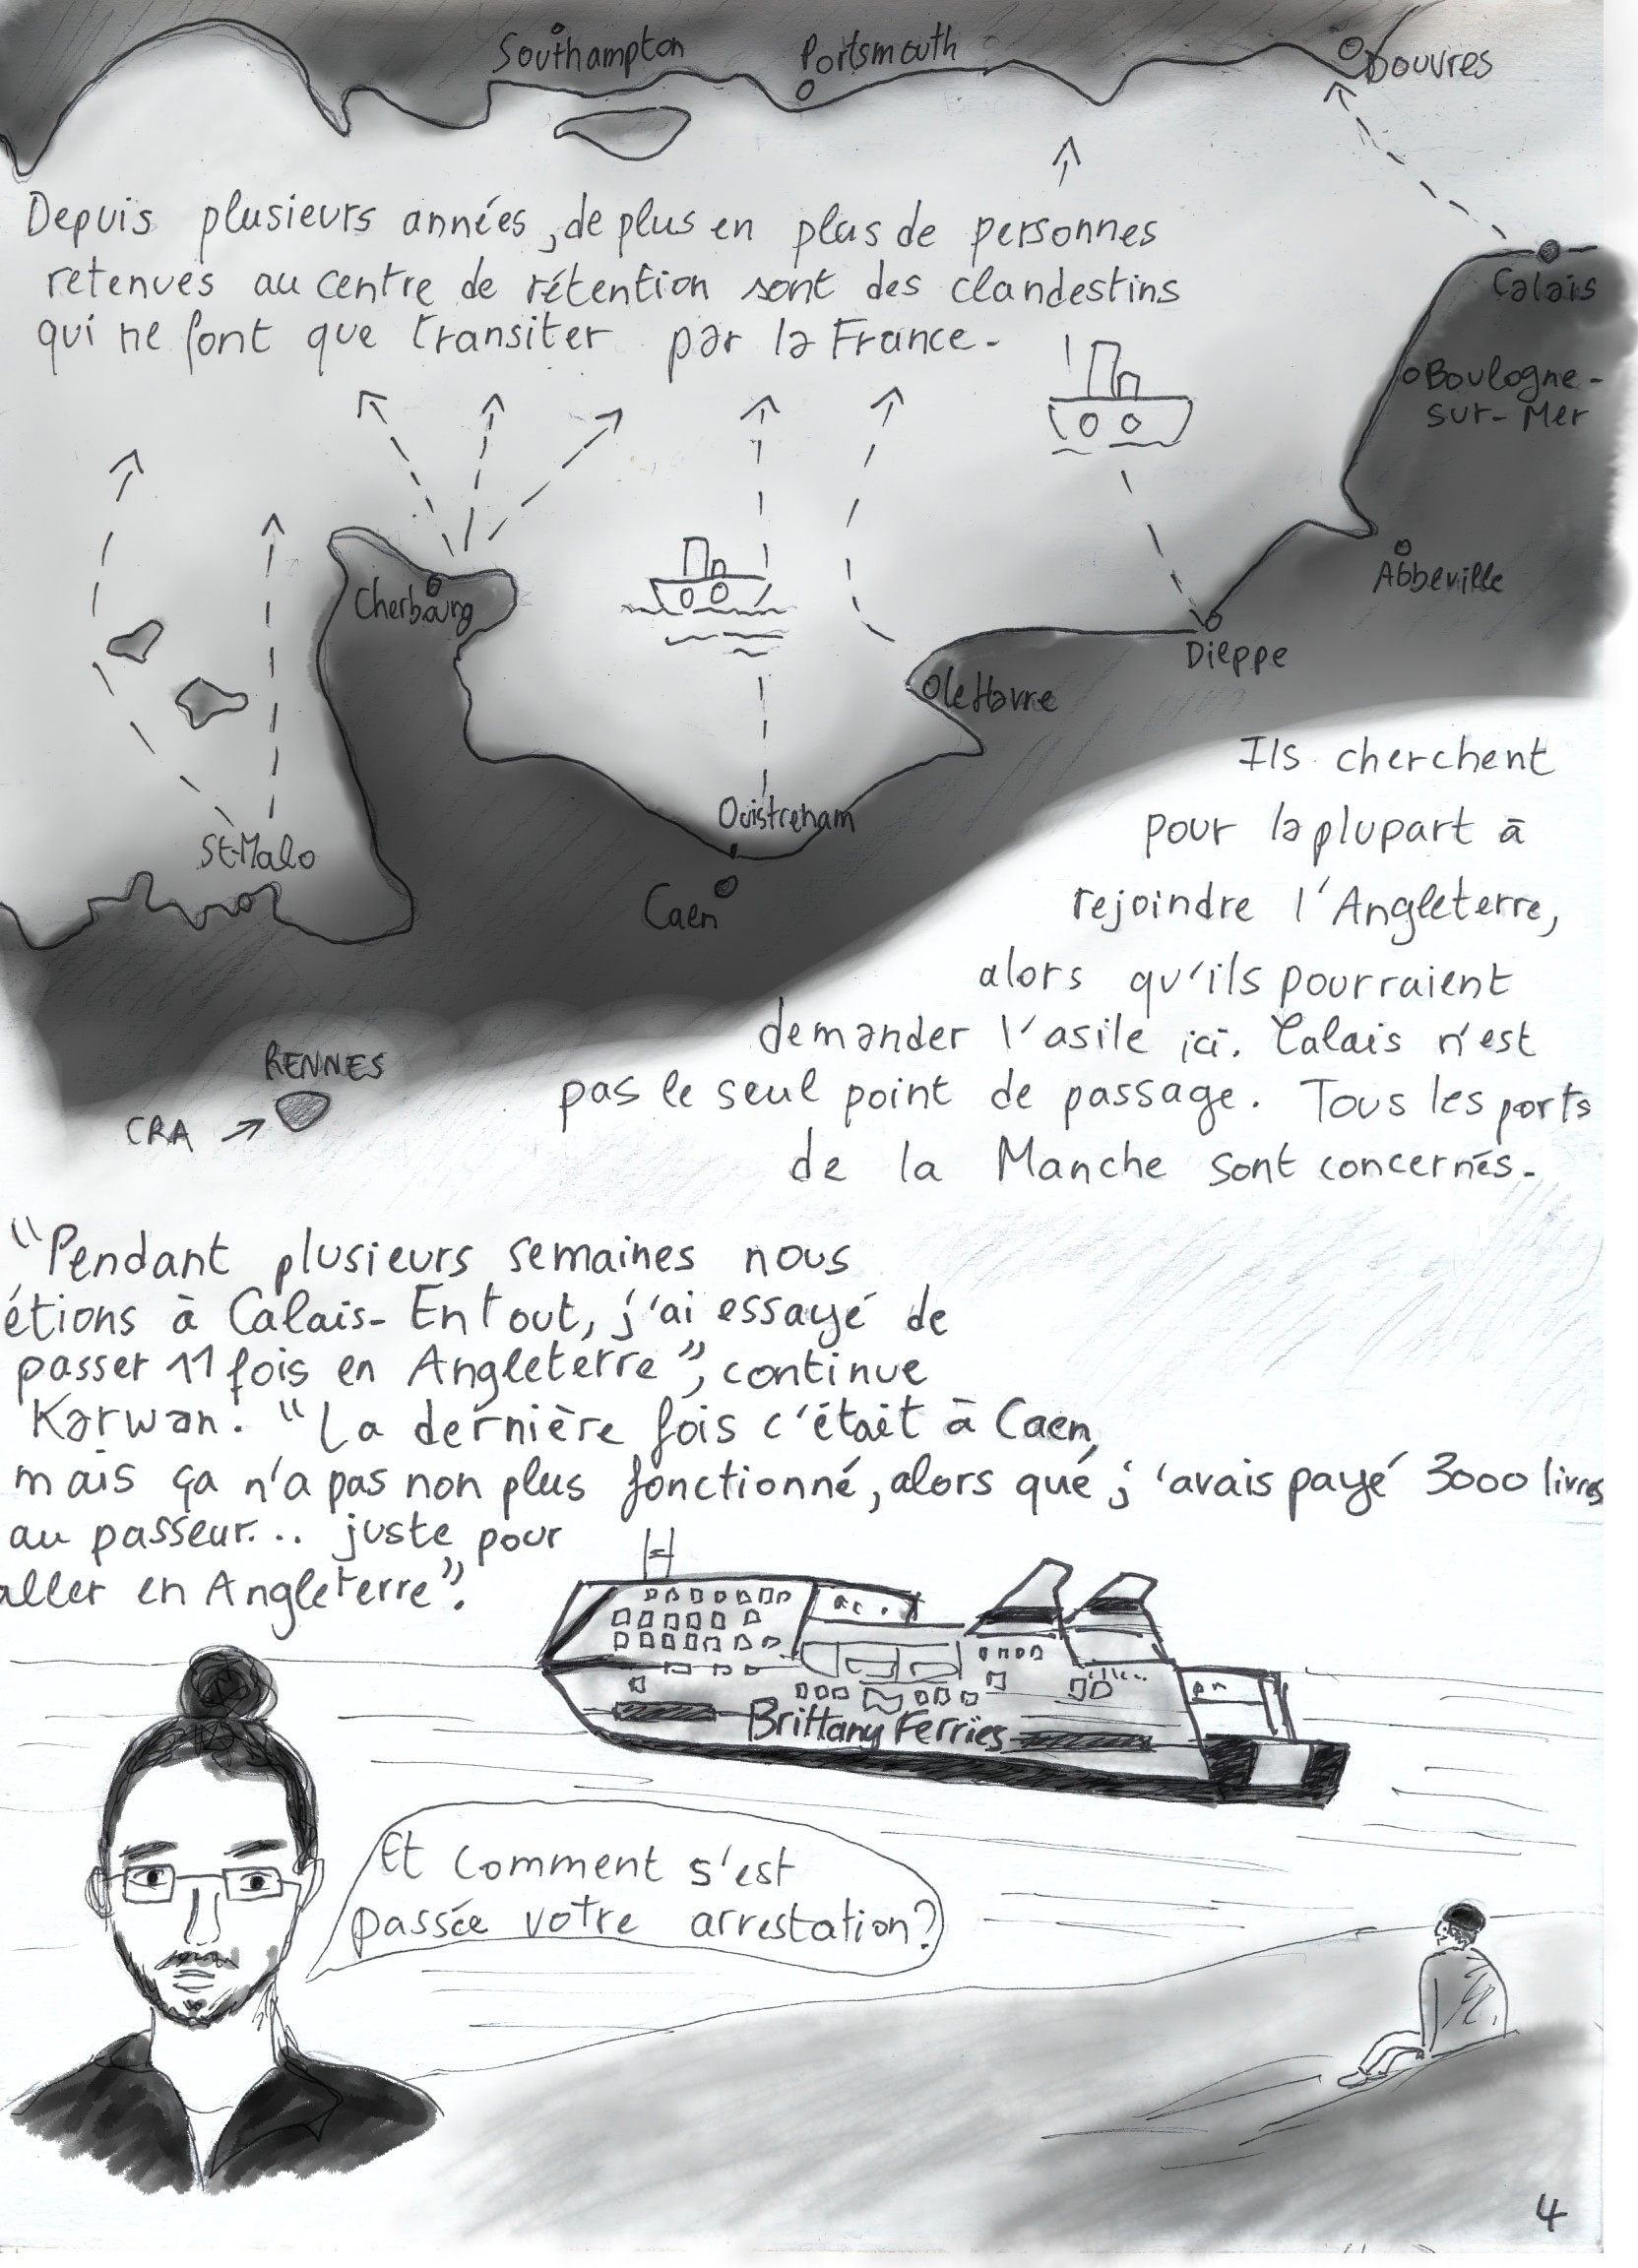 Southampton
Portsmouth
Douvres
Depuis plusieurs années, de plus en plus de personnes
retenues au centre de rétention sont des clandestins
qui ne font que transiter par la France.
Calais
Boulogne-
sur-Mer
Abbeville
Cherbourg
Dieppe
le Havre
Ouistreham
St-Malo
Caen
Ils cherchent
pour la plupart à
rejoindre l'Angleterre,
alors qu'ils pourraient
demander l'asile ici. Calais n'est
pas le seul point de passage. Tous les ports
de la Manche sont concernés.
RENNES
CRA
"Pendant plusieurs semaines nous
étions à Calais. En tout, j'ai essayé de
passer 11 fois en Angleterre", continue
Karwan. "La dernière fois c'était à Caen,
mais ça n'a pas non plus fonctionné, alors que j'avais payé 3000 livres
au passeur... juste pour
aller en Angleterre".
Brittany Ferries
Et comment s'est
passée votre arrestation?
4